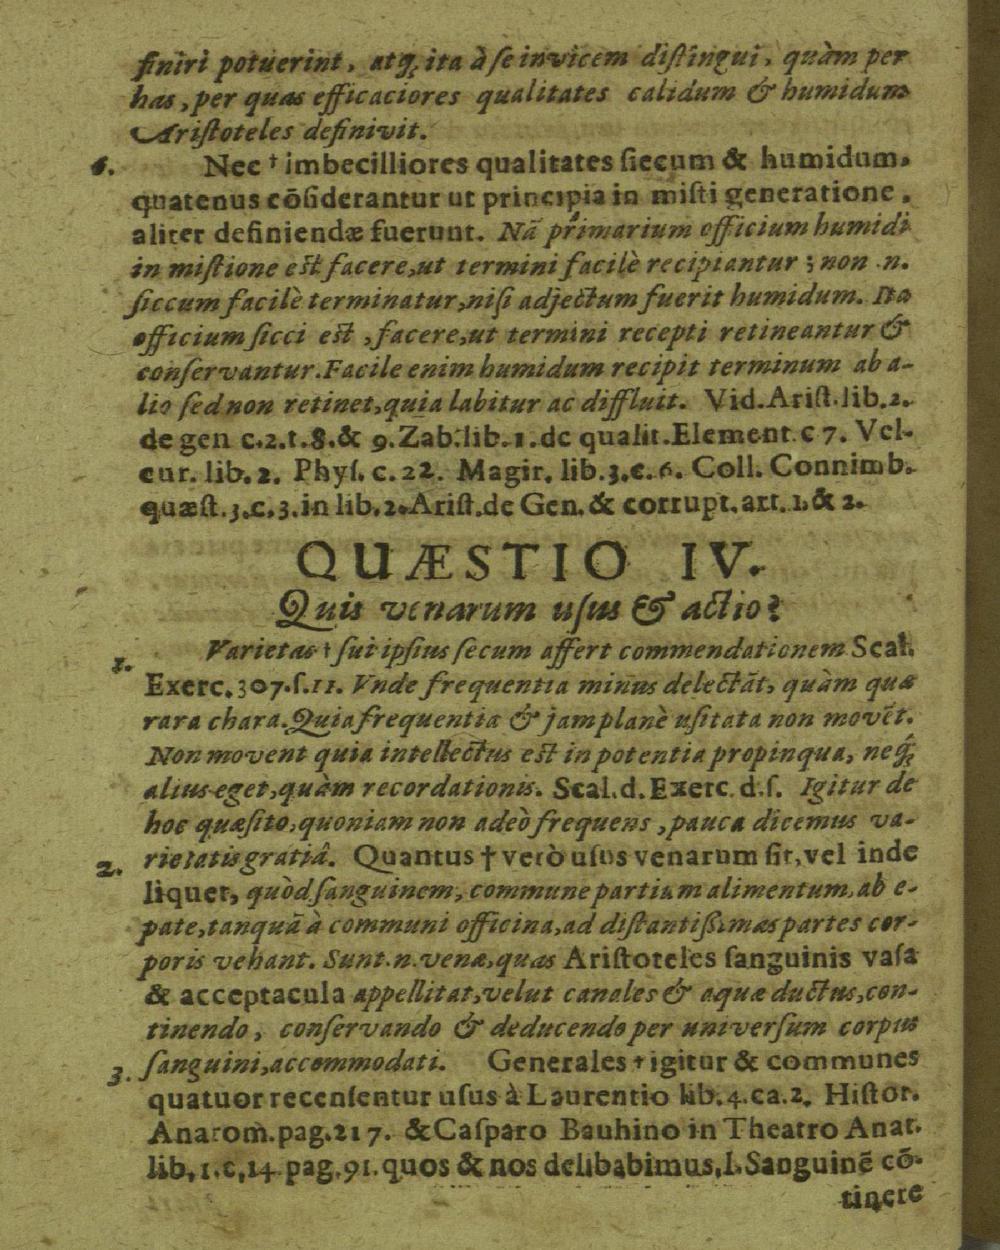 finiri potuerint, atq; ita à se invicem distingui, quàm per
has, per quas efficaciores qualitates calidum & humidum
Aristoteles definivit.
6. Nec † imbecilliores qualitates siccum & humidum,
quatenus cōsiderantur ut principia in misti generatione,
aliter definiendæ fuerunt. Nā primarium officium humidi
in mistione est facere, ut termini facilè recipiantur; non .n.
siccum facilè terminatur, nisi adjectum fuerit humidum. Ita
officium sicci est, facere, ut termini recepti retineantur &
conservantur. Facile enim humidum recipit terminum ab a-
lio sed non retinet, quia labitur ac diffluit. Vid. Arist. lib. 2.
de gen c. 2. t. 8. & 9. Zab. lib. 1. de qualit. Element. c 7. Vel-
cur. lib. 2. Phys. c. 22. Magir. lib. 3. c. 6. Coll. Connimb.
quæst. 3. c. 3. in lib. 2. Arist. de Gen. & corrupt. art. 1. & 2.
QUÆSTIO IV.
Quis venarum usus & actio?
1. Varietas † sui ipsius secum affert commendationem Scal.
Exerc. 307. s. 11. Vnde frequentia minùs delectāt, quàm quæ
rara chara. Quia frequentia & jam planè usitata non movēt.
Non movent quia intellectus est in potentia propinqua, neq;
alius eget, quàm recordationis. Scal. d. Exerc. d. s. Igitur de
hoc quæsito, quoniam non adeò frequens, pauca dicemus va-
rietatis gratiâ.
2. Quantus † verò usus venarum sit, vel inde
liquet, quòd sanguinem, commune partium alimentum, ab e-
pate, tanquā à communi officina, ad distantissimas partes cor-
poris vehant. Sunt .n. venæ, quas Aristoteles sanguinis vasa
& acceptacula appellitat, velut canales & aquæ ductus, con-
tinendo, conservando & deducendo per universum corpus
3. sanguini, accommodati. Generales † igitur & communes
quatuor recensentur usus à Laurentio lib. 4. ca. 2. Histor.
Anatom. pag. 217. & Casparo Bauhino in Theatro Anat.
lib. 1. c. 14 pag. 91. quos & nos delibabimus, I. Sanguinē cō-
tinere